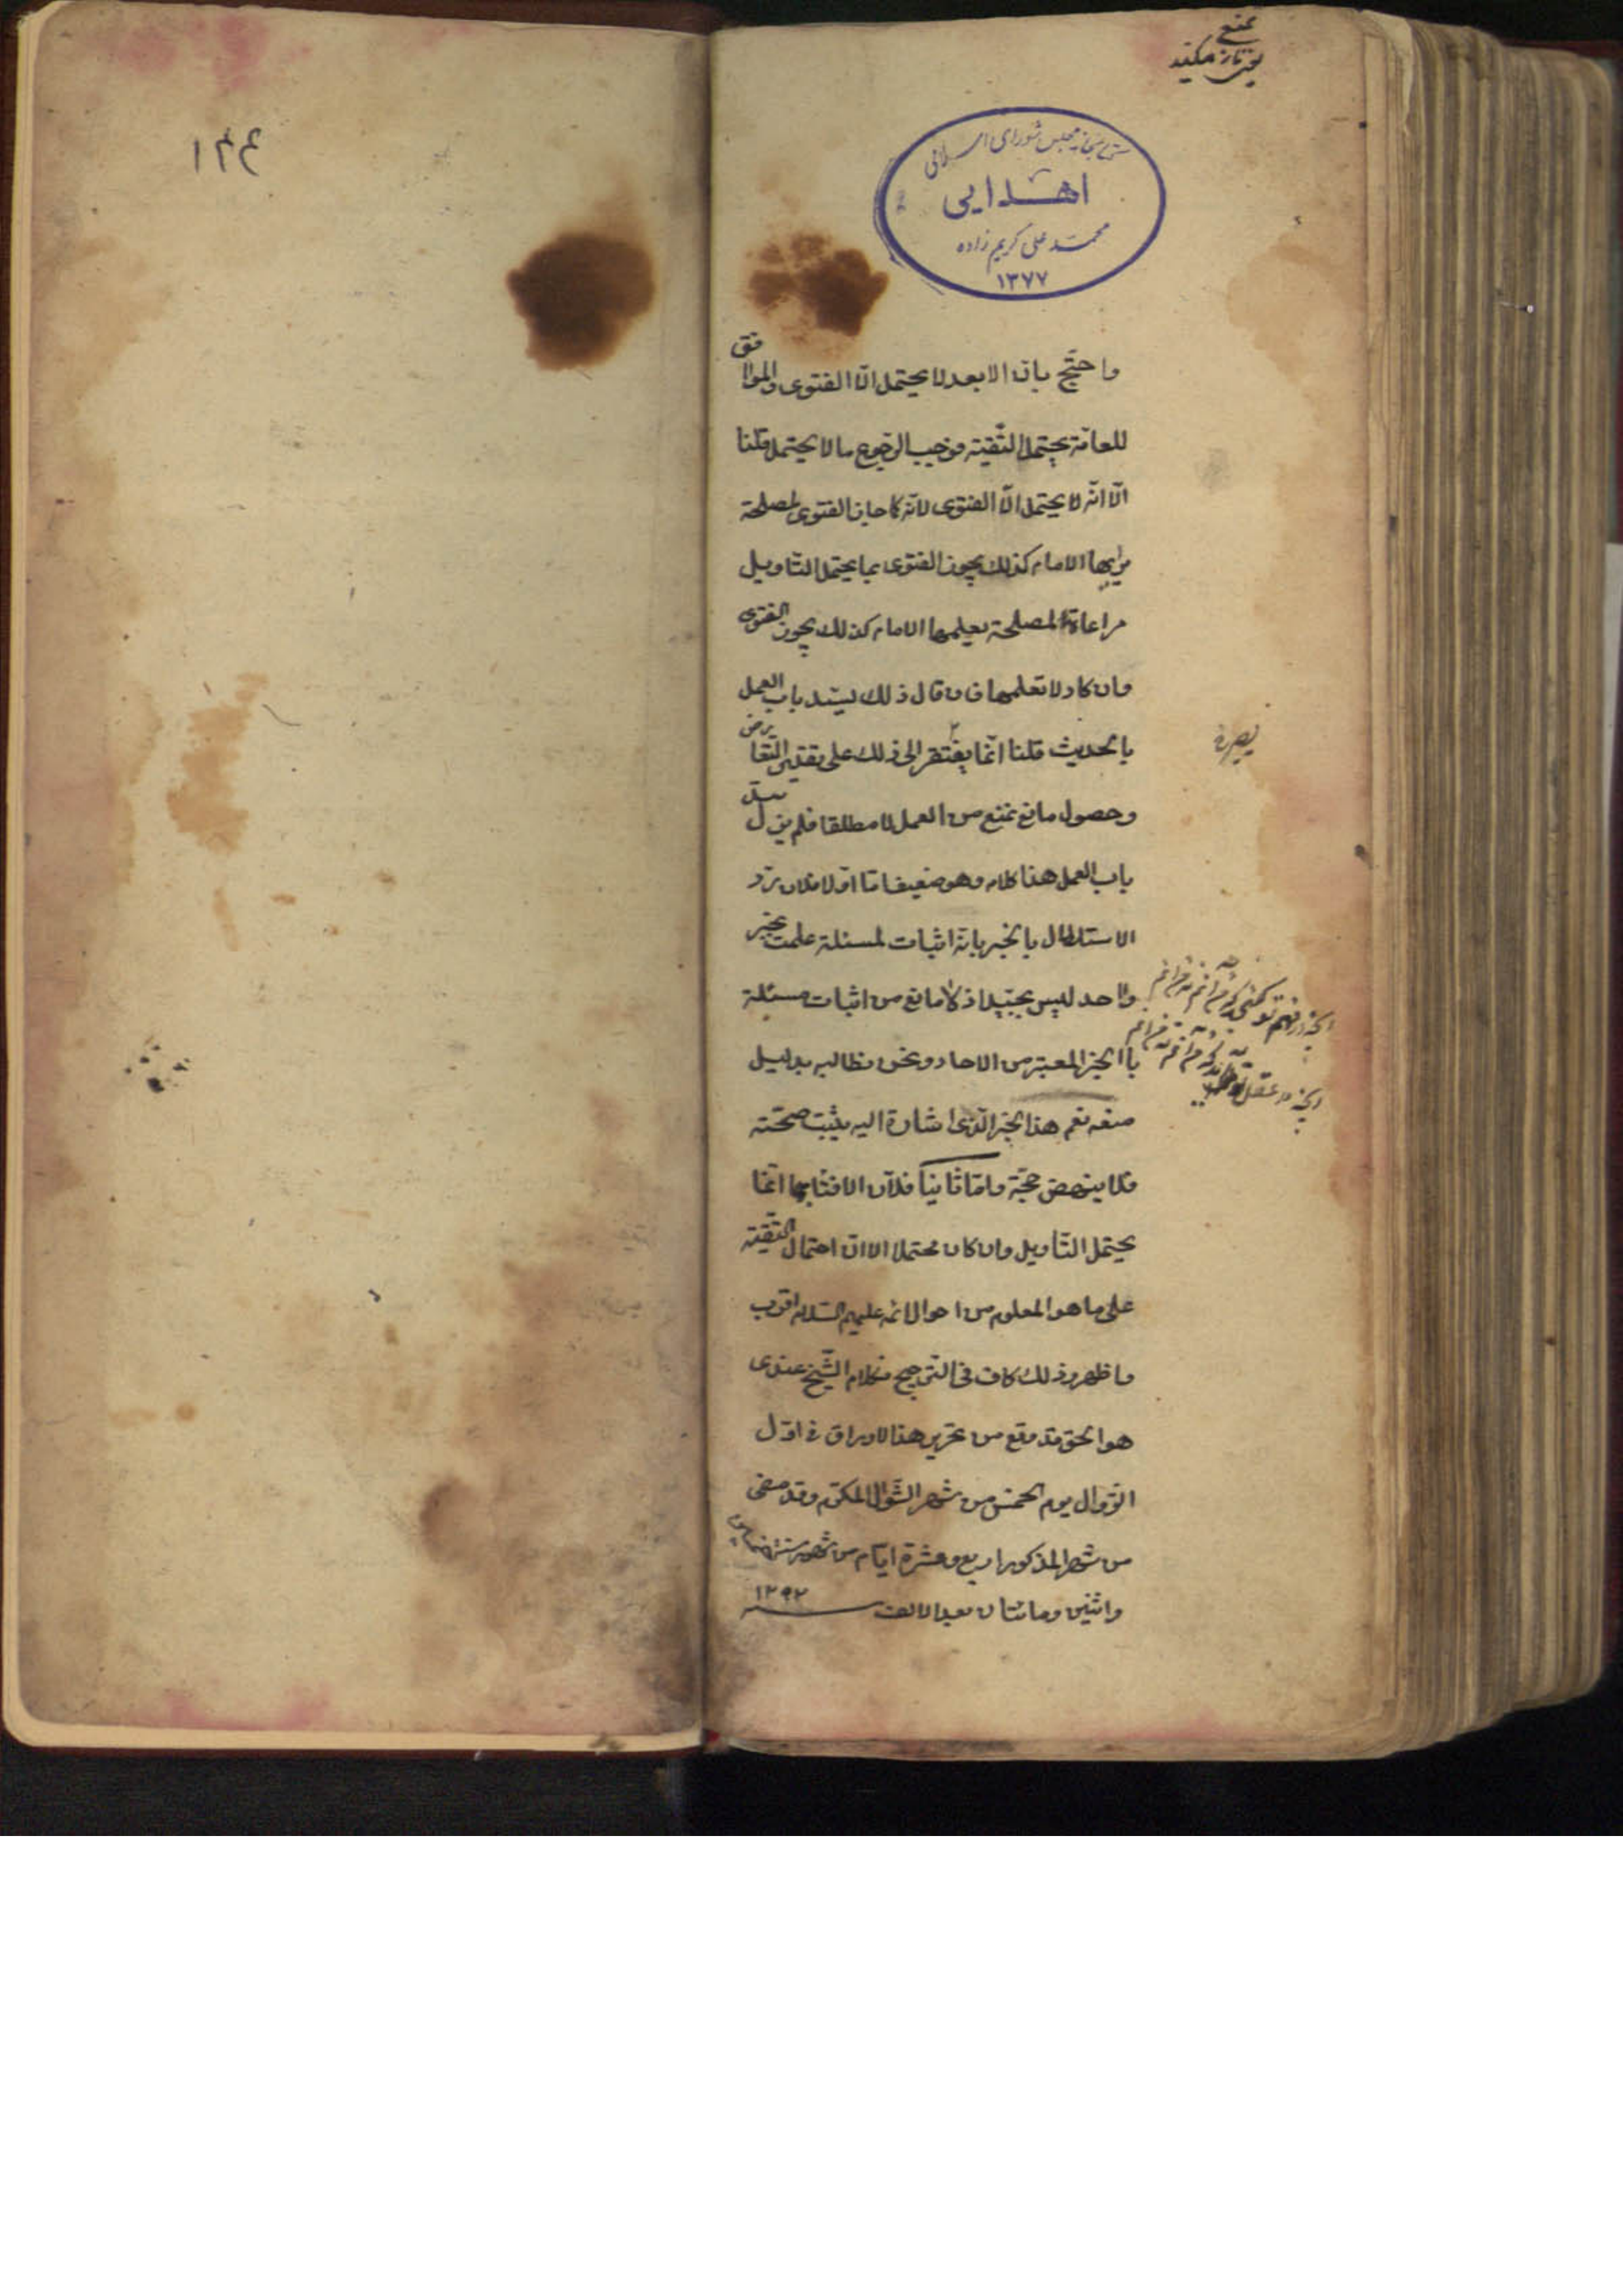 تمنع
كتابخانه مجلس شورای اسلامی
اهدایی
محمد علی کریم زاده
۱۳۷۷
واحتج بان الابعد لا يحتمل الّا الفتوى والموافق
للعامة يحتمل التّقية فوجب الرجوع ما لا يحتمل قلنا
الّا انّه لا يحتمل الّا الفتوى لانّه كما جاز الفتوى لمصلحة
يراها الامام كذلك يجوز الفتوى بما يحتمل التّاويل
مراعاة لمصلحة يعلمها الامام كذلك يجوز الفتوى
وان كاد لا تعلمها فان قال ذلك يسد باب العمل
بالحديث قلنا انّما يفتقر الى ذلك على تقدير التعارض
وحصول مانع تمنع من العمل لا مطلقا فلم يزل
باب العمل هذا كلامه وهو ضعيف امّا اوّلا فلان ردّ
الاستدلال بالخبر بانّه اثبات لمسئلة علمت بخبر
واحد ليس بجيّد اذ لا مانع من اثبات مسئلة
باالخبر المعتبر من الاحاد ونحن نطالبه بدليل
منعه نعم هذا الخبر الّذى اشارة اليه يثبت صحّته
فلا ينهض حجّة وامّا ثانيا فلانّ الافتاء بما انّما
يحتمل التّاويل وان كان محتملا الا انّ احتمال التّقية
على ما هو المعلوم من احوال الائمه عليهم السّلام اقرب
وما ظهر وذلك كاف فى التّرجيح فكلام الشّيخ عندى
هو الحق قد وقع من تحرير هذا لاوراق فى اوّل
الزّوال يوم الخمس من شهر الشّوال المكرّم وقد مضى
من شهر المذكور اربع وعشرة ايّام من شهور سنة
واثنين ومائتان بعد الالف ۱۲۹۲
بصرة